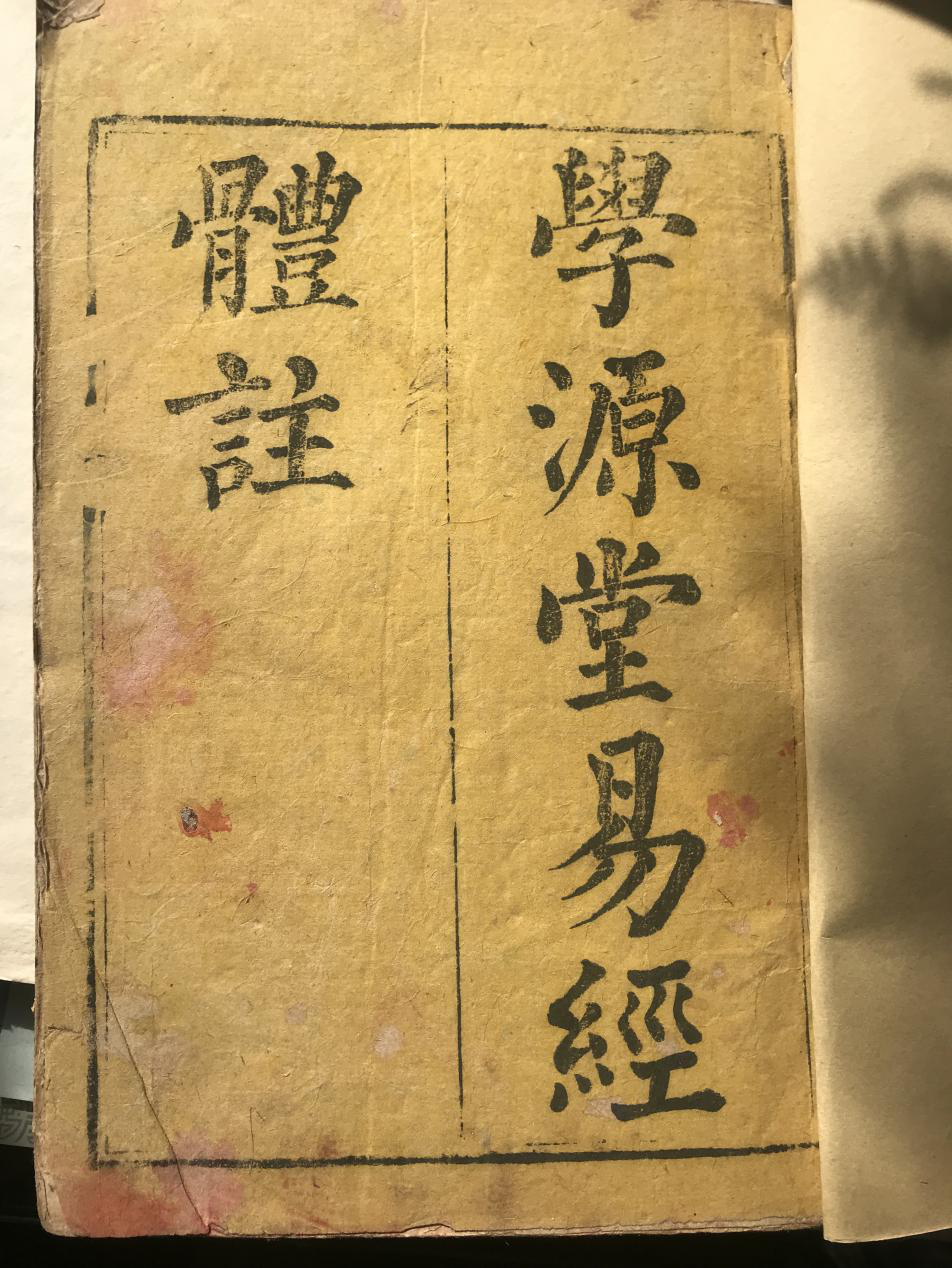 學源堂易經
體註